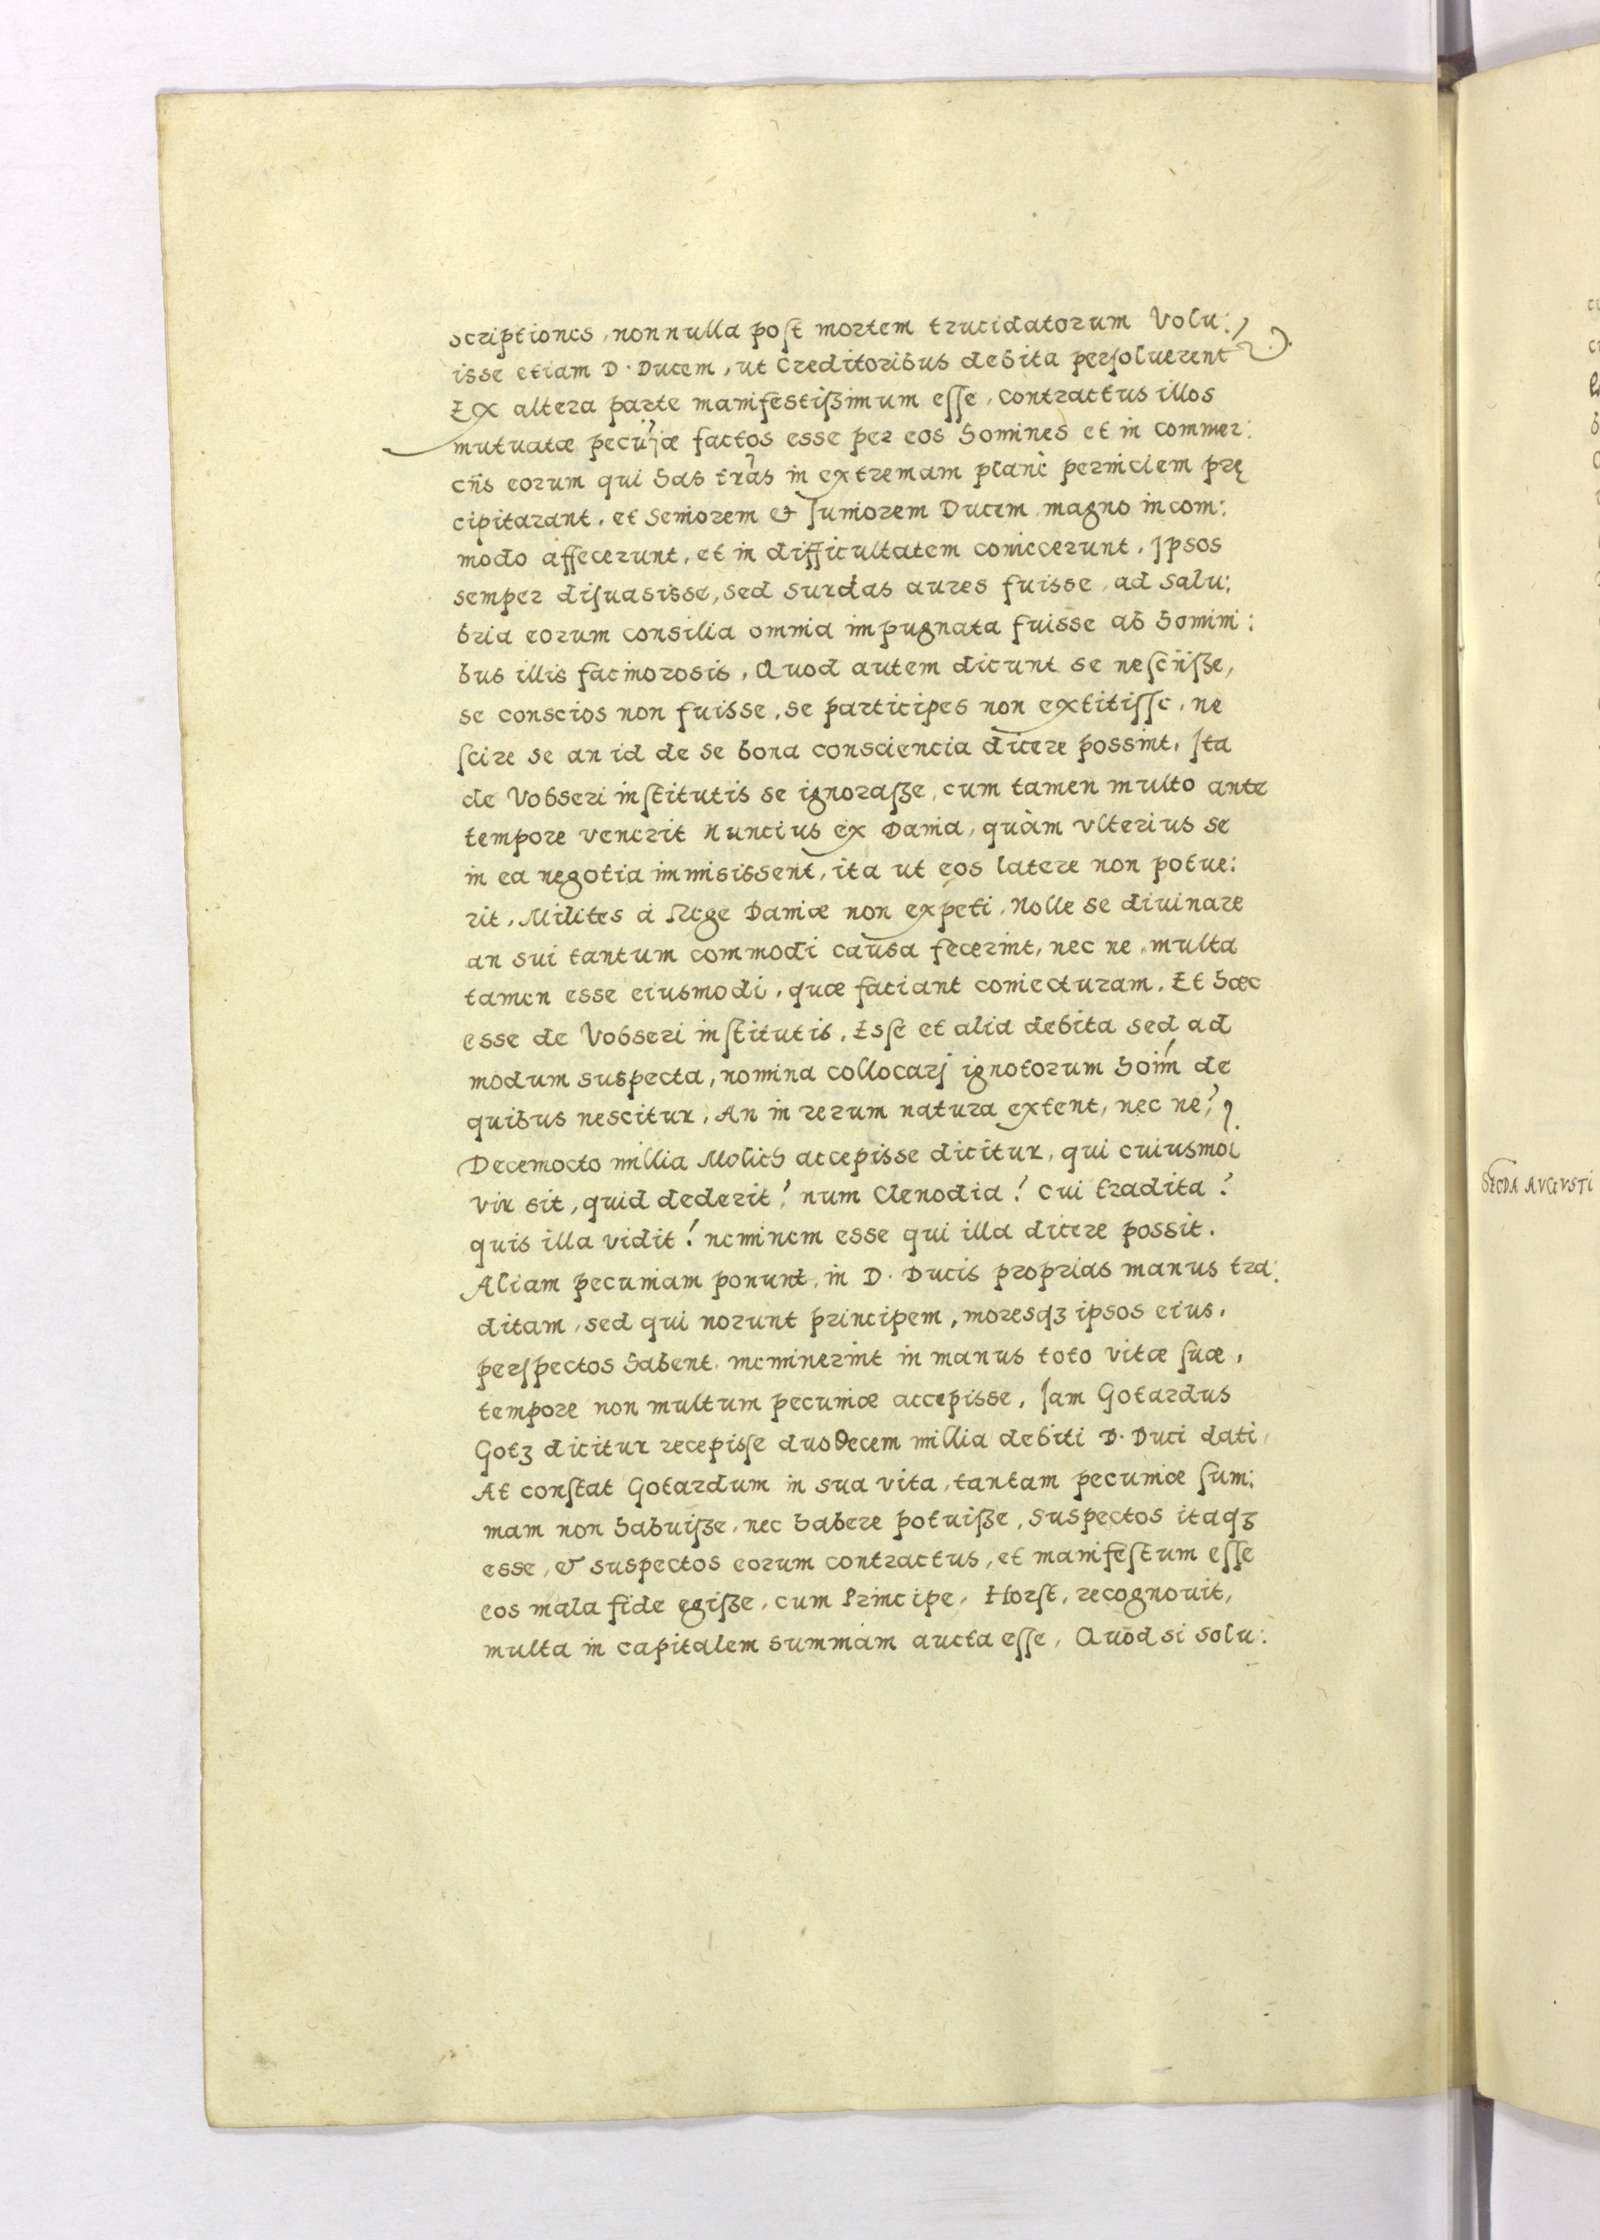 scriptiones, nonnulla poſt mortem trucidatorum Volu:
isse etiam D. Ducem, ut Creditoribus debita perſoluerent
EX altera parte manifestiſʒimum eſſe, contractus illos
mutuatæ pecuniæ factos esse per eos homines et in commer:
cijs eorum qui has tras in extremam planè perniciem prę
cipitarant, et Seniorem & Juniorem Ducem magno incom:
modo affecerunt, et in difficultatem coniecerunt, Ipsos
semper diſuasisse, sed surdas aures fuisse, ad Salu:
bria eorum consilia omnia impugnata fuisse ab homini:
bus illis facinorosis, Quod autem dicunt se neſcijſʒe,
se conscios non fuisse, se participes non extitiſſe, ne
ſcire se an id de se bona consciencia dicere possint, Ita
de Vobseri inſtitutis se ignoraſʒe, cum tamen multo ante
tempore venerit Nuncius ex Dania, quàm vlterius se
in ea negotia immisissent, ita ut eos latere non potue:
rit, Milites á Rege Daniæ non expeti, Nolle se diuinare
an sui tantum commodi causa fecerint, nec ne, multa
tamen esse eiusmodi, quæ faciant coniecturam. Et hæc
esse de Vobseri inſtitutis, Esſe et alia debita sed ad
modum suspecta, nomina collocarj ignotorum hoim̄ de
quibus nescitur, An in rerum natura extent, nec ne?
Decemocto millia Molich accepisse dicitur, qui cuiusmoi
vir sit, quid dederit? num Clenodia? Cui tradita?
quis illa vidit? neminem esse qui illa dicere possit.
Aliam pecuniam ponunt, in D. Ducis proprias manus tra:
ditam, sed qui norunt principem, moresqʒ ipsos eius,
perſpectos habent, meminerint in manus toto vitæ ſuæ,
tempore non multum pecuniæ accepisse, Iam Gotardus
Gotʒ dicitur recepiſſe duodecem millia debiti D. Duci dati,
At conſtat Gotardum in sua vita, tantam pecuniæ ſum:
mam non habuiſʒe, nec habere potuiſʒe, Suspectos itaqʒ
esse, & suspectos eorum contractus, et manifeſtum eſſe
eos mala fide egiſʒe, cum Principe, Horſt, recognouit,
multa in capitalem summam aucta eſſe, Quod si Solu:
SECDA AVGVSTI